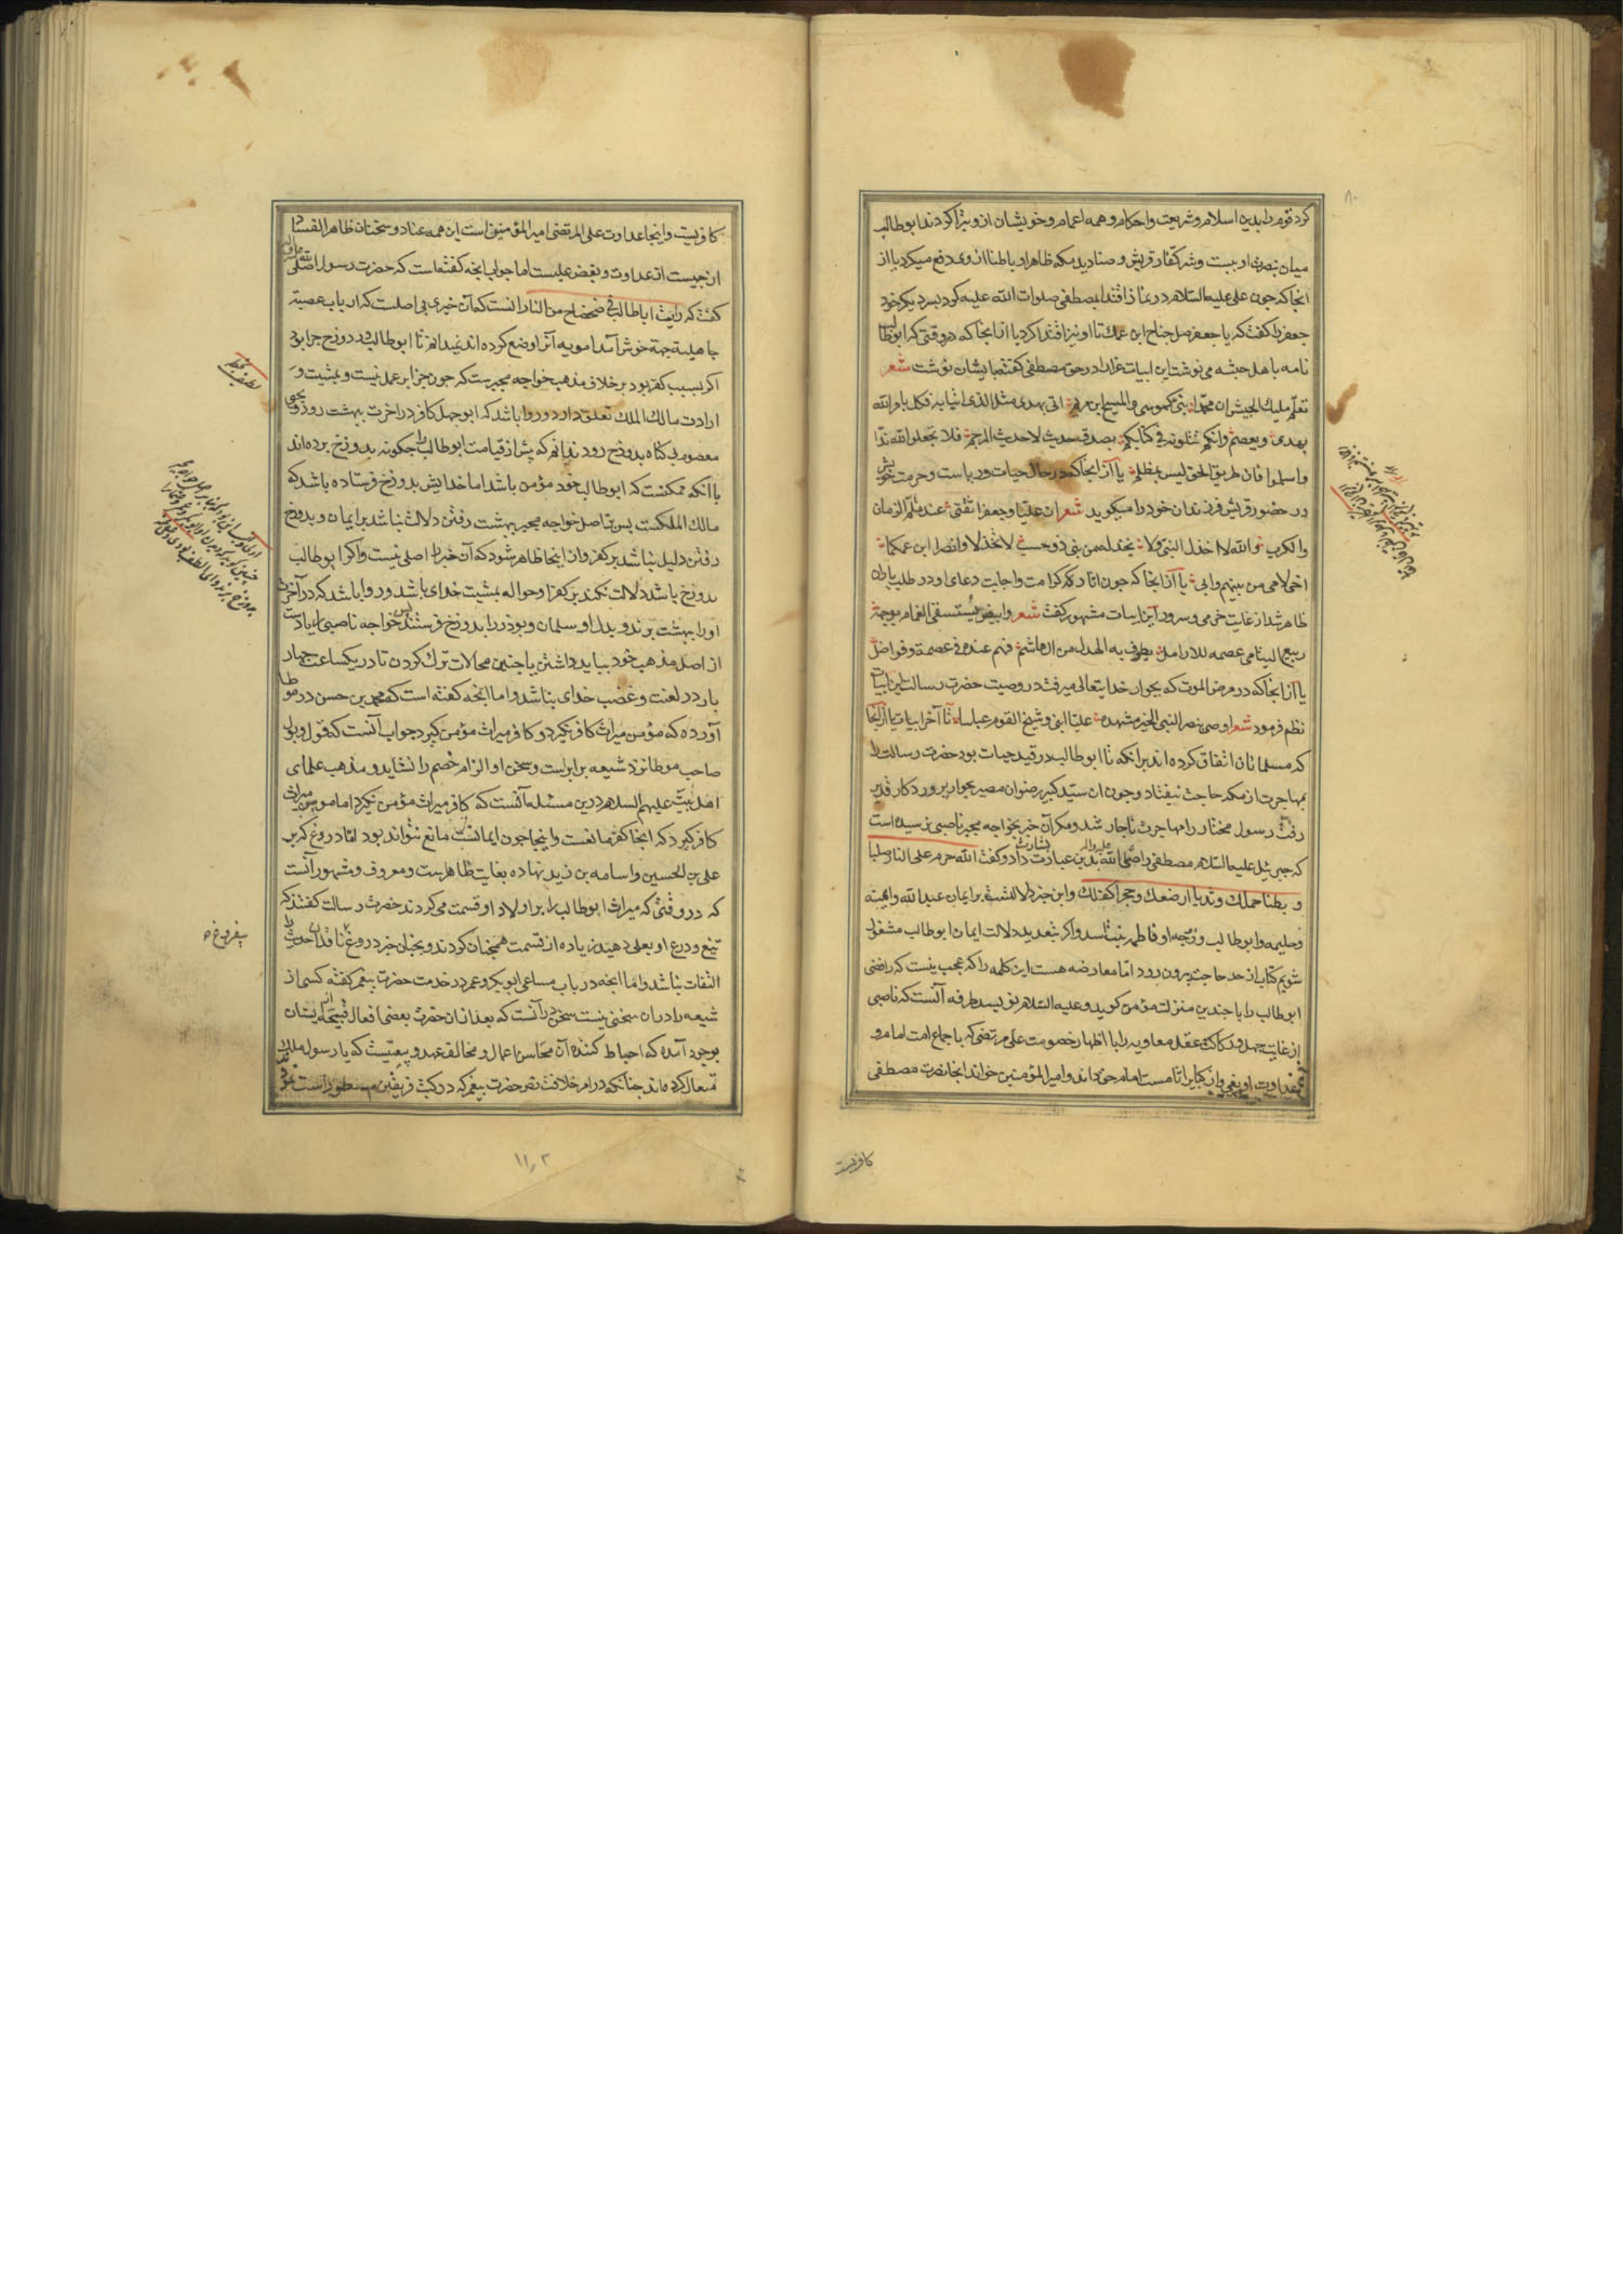 کرد قوم را بدین اسلام و شریعت و احکام و همه اعمام و خویشان ازو تبرا کردند ابوطالب
میان نصرت او ببست و شر کفار قریش و صنادید مکه ظاهرا و باطنا از وی دفع میکرد یا از
آنجا که چون علی علیه السلام در نماز اقتدا بمصطفی صلوات الله علیه کرد پسر دیگر خود
جعفر را کفت که یا جعفر صل جناح ابن عمک تا او نیز اقتدا کرد یا از آنجا که در وقتی که ابوطالب
نامه باهل حبشه می نوشت این ابیات غرا در حق مصطفی کفته بایشان نوشت شعر
تعلم ملیک الحبش ان محمدا نبی کموسی و المسیح ابن مریم اتی بهدی مثل الذی اتیا به فکل بامر الله
یهدی و یعصم وانکم تتلونه فی کتابکم بصدق حدیث لا حدیث المرجم فلا تجعلوا لله ندا
واسلموا فان طریق الحق لیس بمظلم یا از آنجا که در حال حیات و ریاست و حرمت خویش
در حضور قریش فرزندان خود را میکوید شعر ان علیا و جعفرا ثقتی عند ملم الزمان
والکرب والله لا اخذل النبی ولا یخذله من بنی ذو حسب لا تخذلا وانصرا ابن عمکما
اخی لامی من بینهم وابی یا از آنجا که چون اثار کرامت و اجابت دعای او در طلب باران
ظاهر شد از غایت خرمی و سرور آن ابیات مشهور کفت شعر وابیض یستسقی الغمام بوجهه
ربیع الیتامی عصمه للارامل یطوف به الهلاک من ال هاشم فهم عنده فی عصمة و فواضل
یا از آنجا که در مرض الموت که بجوار خدایتعالی میرفت در وصیت حضرت رسالت این ابیات
نظم فرمود شعر اوصی بنصر النبی الخیر مشهده علیا ابنی و شیخ القوم عباسا تا آخر ابیات یا از آنجا
که مسلمانان اتفاق کرده اند بر انکه تا ابوطالب در قید حیات بود حضرت رسالت را
بمهاجرت از مکه حاجت نیفتاد و چون ان سید کبیر رضوان مصیر بجوار پروردکار قدیر
رفت رسول مختار را مهاجرت ناچار شد و مکر آن خبر بخواجه مجبر ناصبی نرسیده است
که جبرئیل علیه السلام مصطفی را صلی الله علیه واله بدین عبارت بشارت داد و کفت الله حرم علی النار صلبا
و بطنا حملک و ثدیا ارضعک و حجرا کفلک و این خبر دلالتست بر ایمان عبدالله و امنه
و حلیمه و ابوطالب و زوجه او فاطمه بنت اسد و اکر بتعدید دلالت ایمان ابوطالب مشغول
شویم کتاب از حد حاجت بیرون رود اما معارضه هست این کلمه را که عجب نیست که رافضی
ابوطالب را با چندین منزلت مؤمن کوید و علیه السلام نویسد طرفه آنست که ناصبی
از غایت جهل و رکاکت عقل معاویه را با اظهار خصومت علی مرتضی که باجماع امت امام و
عداوت او بغی و از کبایر اتام است امام حق داند و امیر المؤمنین خواند آنجا نصرت مصطفی
کافریست
کافریست و اینجا عداوت علی المرتضی امیر المؤمنین است این همه عناد و سخنان ظاهر الفساد
از چیست از عداوت و بغض علیست اما جواب آنچه کفته است که حضرت رسول صلی الله علیه واله
کفت که رایت اباطالب فی ضحضاح من النار آنست که آن خبری بی اصلست که ارباب عصبیة
جاهلیة جهة خوش آمد امویه آنرا وضع کرده اند نمیدانم تا ابوطالب در دوزخ چرا بود
اکر بسبب کفر بود بر خلاف مذهب خواجه مجبرست که چون جزا بر عمل نیست و بمشیت و
ارادت مالک الملک تعلق دارد و روا باشد که ابوجهل کافر در اخرت ببهشت رود و یحیی
معصوم بی کناه بدوزخ رود ندانم که پیش از قیامت ابوطالب را چکونه بدوزخ برده اند
با آنکه ممکنست که ابوطالب خود مؤمن باشد اما خدایش بدوزخ فرستاده باشد که
مالک الملکست پس بر اصل خواجه مجبر ببهشت رفتن دلالت نباشد بر ایمان و بدوزخ
رفتن دلیل نباشد بر کفر و از اینجا ظاهر شود که آن خبر را اصلی نیست و اکر ابوطالب
بدوزخ باشد دلالت نکند بر کفر او حواله بمشیت خدای باشد و روا باشد که در آخرت
او را ببهشت برند و بدل او سلمان و بوذر را بدوزخ فرستند پس خواجه ناصبی را یا دست
از اصل مذهب خود بباید داشتن یا چنین محالات ترک کردن تا در یکساعت چهار
بار در لعنت و غضب خدای نباشد و اما آنچه کفته است که محمد بن حسن در موطا
آورده که مؤمن میراث کافر نکیرد و کافر میراث مؤمن نکیرد جواب آنست که قول و بول
صاحب موطا نزد شیعه برابر است و سخن او الزام خصم را نشاید و مذهب علمای
اهل بیت علیهم السلام درین مسئله آنست که کافر میراث مؤمن نکیرد اما مومن میراث
کافر کیرد که آنجا کفر مانعست و اینجا چون ایمانست مانع نتواند بود اما دروغ که بر
علی بن الحسین و اسامه بن زید نهاده بغایت ظاهرست و معروف و مشهور آنست
که در وقتی که میراث ابوطالب را بر اولاد او قسمت می کردند حضرت رسالت کفتند که
تیغ و درع او بعلی دهید زیاده از قسمت همچنان کردند و بچنان خبر دروغ ناقدان حدیث را
التفات نباشد و اما آنچه در باب مساعی ابوبکر و عمر در خدمت حضرت پیغمبر کفته کسی از
شیعه را در ان سخنی نیست سخن در آنست که بعد از ان حضرت بعضی افعال قبیحه از ایشان
بوجود آمده که احباط کننده آن محاسن اعمال و مخالف عهد و بیعتیست که با رسول ملک
متعال کرده اند چنانکه در امر خلافت نص حضرت پیغمبر که در کتب فریقین مسطور است
۱۱۰۲